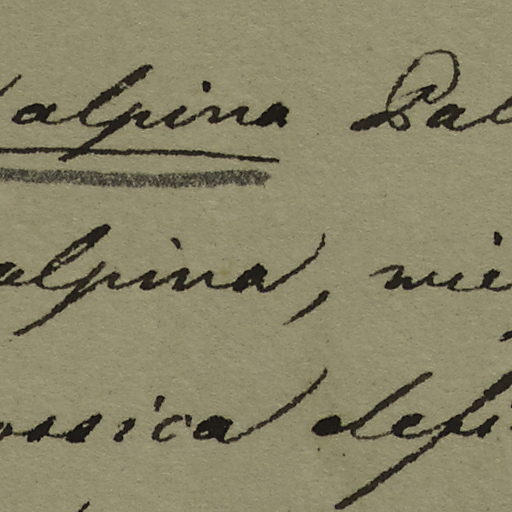 alpina Pal
alpina, wie
ossica defi